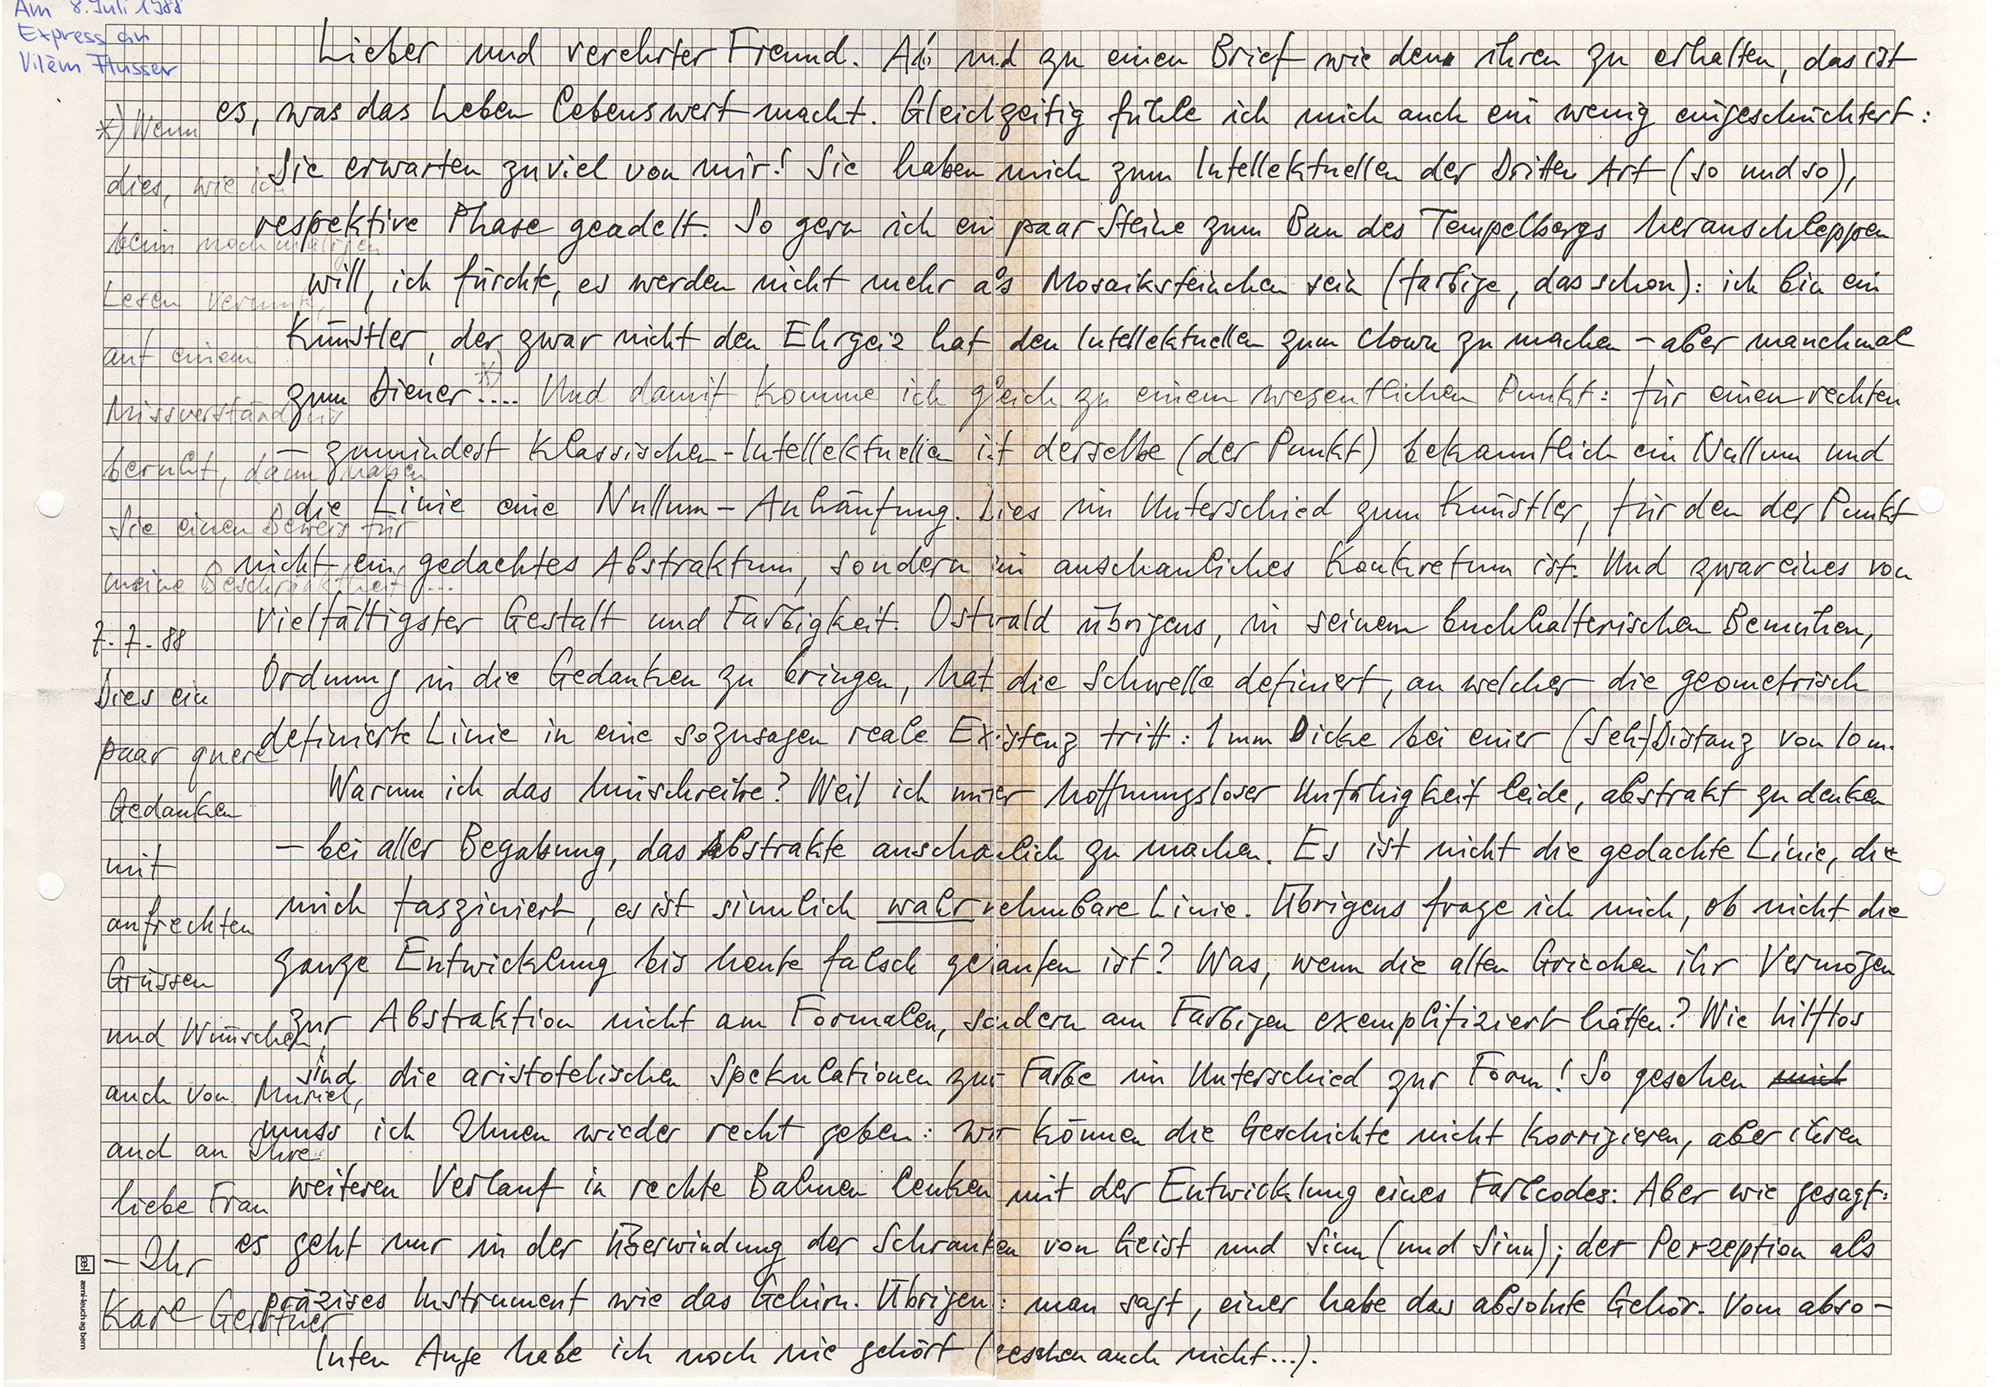 Am 8. Juli 1988
Express an
Vilém Flusser
Lieber und verehrter Freund. Ab und zu einen Brief wie den ihren zu erhalten, das ist
es, was das Leben lebenswert macht. Gleichzeitig fühle ich mich auch ein wenig eingeschüchtert:
Sie erwarten zuviel von mir! Sie haben mich zum Intellektuellen der Dritten Art (so und so),
respektive Phase geadelt. So gern ich ein paar Steine zum Bau des Tempelbergs heranschleppen
will, ich fürchte, es werden nicht mehr als Mosaiksteinchen sein (farbige, das schon): ich bin ein
Künstler, der zwar nicht den Ehrgeiz hat den Intellektuellen zum Clown zu machen – aber manchmal
zum Diener*).... Und damit komme ich gleich zu einem wesentlichen Punkt: für einen rechten
– zumindest klassischen – Intellektuellen ist derselbe (der Punkt) bekanntlich ein Nullum und
die Linie eine Nullum-Anhäufung. Dies im Unterschied zum Künstler, für den der Punkt
nicht ein gedachtes Abstraktum, sondern ein anschauliches Konkretum ist. Und zwar eines von
vielfältigster Gestalt und Farbigkeit. Ostwald übrigens, in seinem buchhalterischen Bemühen,
Ordnung in die Gedanken zu bringen, hat die Schwelle definiert, an welcher die geometrisch
definierte Linie in eine sozusagen reale Existenz tritt: 1 mm Dicke bei einer (Seh-)Distanz von 10 m.
Warum ich das hinschreibe? Weil ich unter hoffnungsloser Unfähigkeit leide, abstrakt zu denken
– bei aller Begabung, das Abstrakte anschaulich zu machen. Es ist nicht die gedachte Linie, die
mich fasziniert, es ist sinnlich wahrnehmbare Linie. Übrigens frage ich mich, ob nicht die
ganze Entwicklung bis heute falsch gelaufen ist? Was, wenn die alten Griechen ihr Vermögen
zur Abstraktion nicht am Formalen, sondern am Farbigen exemplifiziert hätten? Wie hilflos
sind die aristotelischen Spekulationen zur Farbe im Unterschied zur Form! So gesehen mich
muss ich Ihnen wieder recht geben: wir können die Geschichte nicht korrigieren, aber ihren
weiteren Verlauf in rechte Bahnen lenken mit der Entwicklung eines Farbcodes: Aber wie gesagt:
es geht nur in der Überwindung der Schranken von Geist und Sinn (und Sinn); der Perzeption als
präzises Instrument wie das Gehirn. Übrigens: man sagt, einer habe das absolute Gehör. Vom abso-
luten Auge habe ich noch nie gehört (gesehen auch nicht...).
*) Wenn
dies, wie ich
beim nochmaligen
Lesen vermute,
auf einem
Missverständnis
beruht, dann haben
Sie einen Beweis für
meine Beschränktheit...
7.7.88
Dies ein
paar quere
Gedanken
mit
aufrechten
Grüssen
und Wünschen,
auch von Muriel,
and an Ihre
liebe Frau
– Ihr
Karl Gerstner
aerni-leuch ag bern